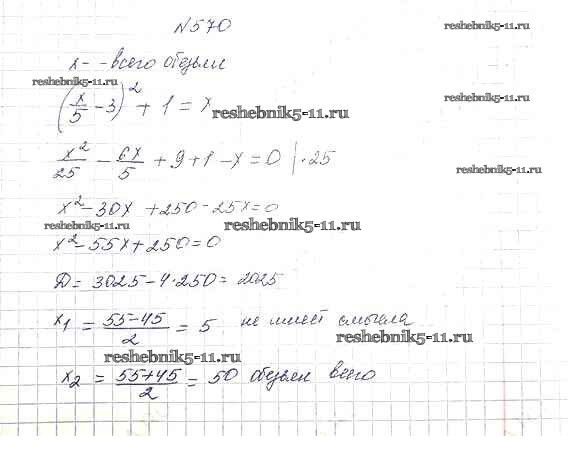 №570
reshebnik5-11.ru
x - - всего обезьян
reshebnik5-11.ru
(x/5 - 3)² + 1 = x
reshebnik5-11.ru
reshebnik5-11.ru
x²/25 - 6x/5 + 9 + 1 - x = 0 | · 25
reshebnik5-11.ru
x² - 30x + 250 - 25x = 0
reshebnik5-11.ru
reshebnik5-11.ru
reshebnik5-11.ru
x² - 55x + 250 = 0
Д = 3025 - 4 · 250 = 2025
x₁ = (55 - 45)/2 = 5 не имеет смысла
reshebnik5-11.ru
reshebnik5-11.ru
x₂ = (55 + 45)/2 = 50 обезьян всего